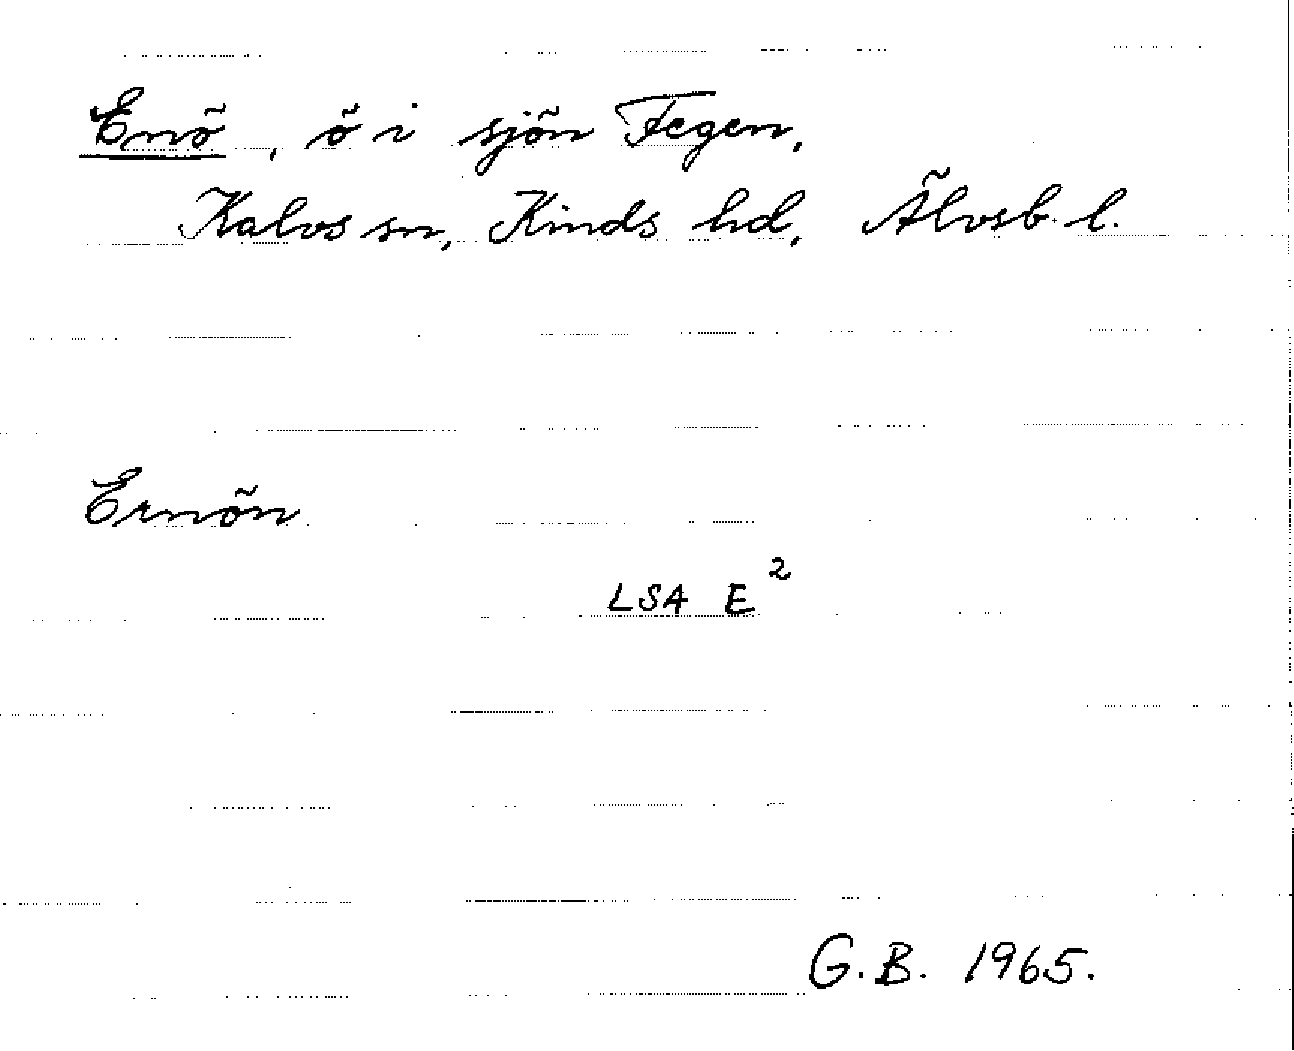 Enö, ö i sjön Fegen,
Kalvs sn, Kinds hd, Älvsb. l.
Ernön
LSA E²
G.B. 1965.